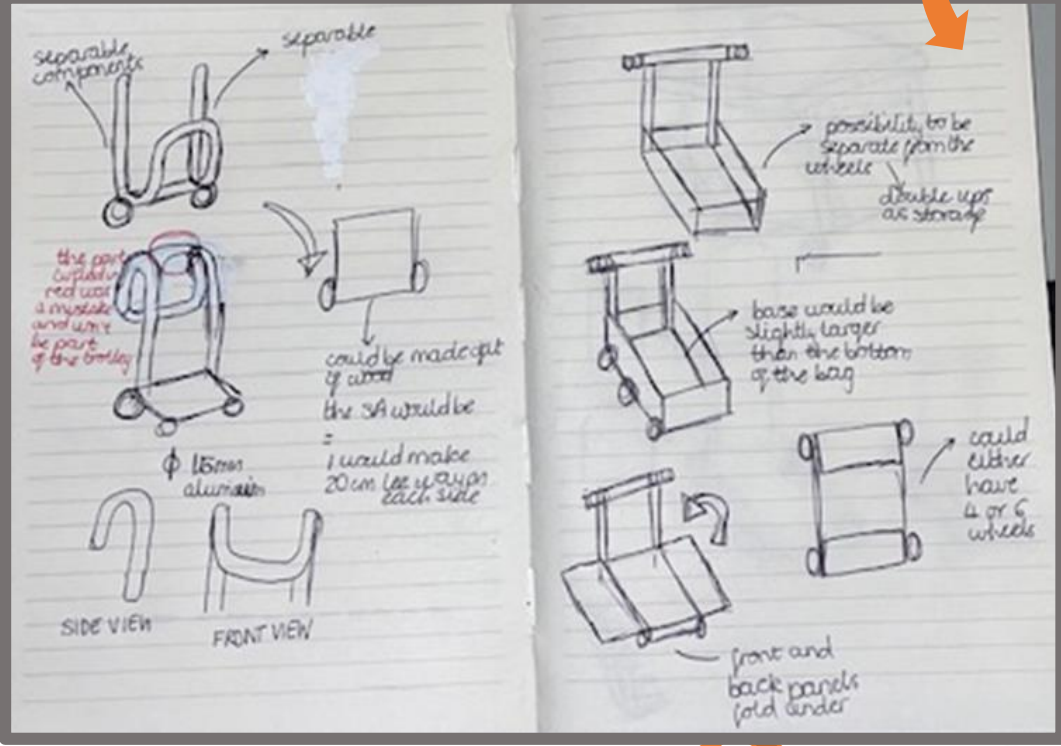 separable
components
separable
the part
circled in
red was
a mistake
and won't
be part
of the trolley
could be made out
of wood
the SA would be
=
I would make
20cm leeway on
each side
ϕ 15mm
aluminium
SIDE VIEW
FRONT VIEW
possibility to be
separate from the
wheels
double ups
as storage
base would be
slightly larger
than the bottom
of the bag
could
either
have
4 or 6
wheels
front and
back panels
fold under